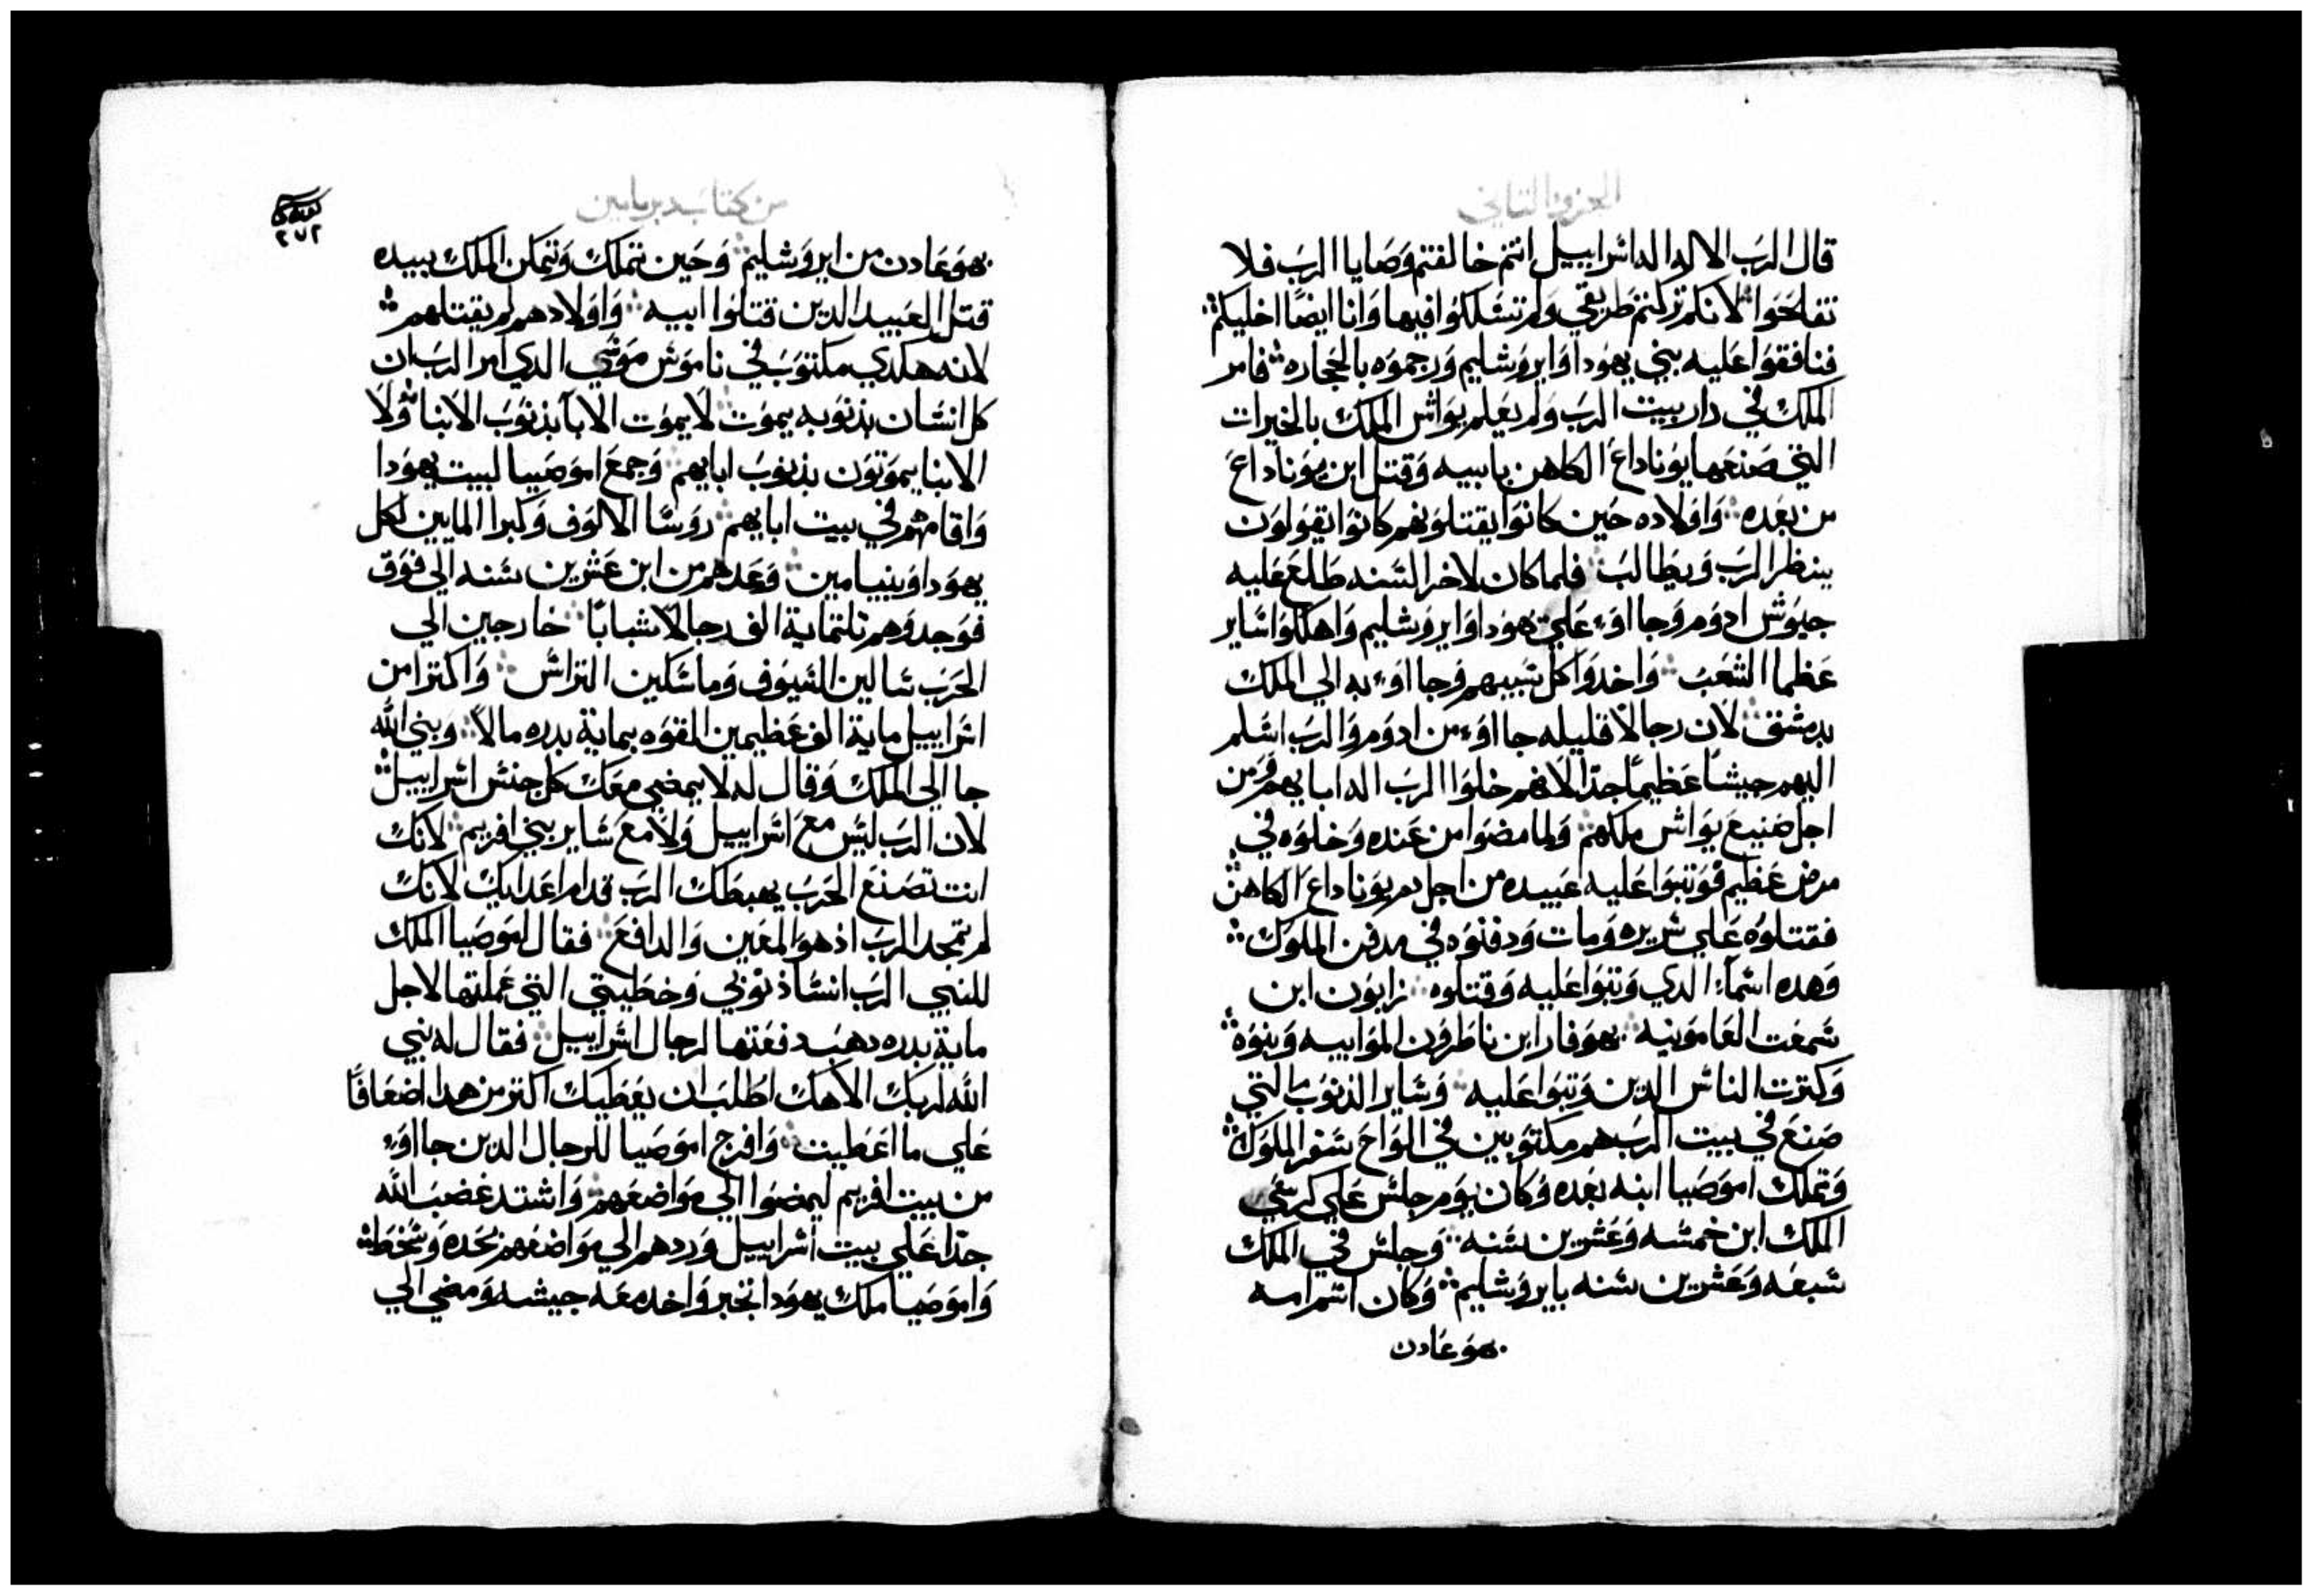 الجزو التاني
قال الرب الاله اله اسراييل انتم خالفتم وصايا الرب فلا
تفلحوا لانكم تركتم طريقي ولم تسلكوا فيها وانا ايضًا اخليكم
فنافقوا عليه بني يهودا وايروشليم ورجموه بالحجاره فامر
الملك في دار بيت الرب ولم يعلم يواش الملك بالخيرات
التي صنعها يوناداع الكاهن بابيه وقتل ابن يوناداع
من بعده واولاده حين كانوا يقتلونهم كانوا يقولون
ينظر الرب ويطالب فلما كان لاخر السنه طلع عليه
جيوش ادوم وجااوء علي يهودا وايروشليم واهلكوا ساير
عظما الشعب واخدوا كل سبيهم وجااوء به الي الملك
بدمشق لان رجالا قليله جااوء من ادوم والرب اسلم
اليهم جيشا عظيمًا جدًا لانهم خلوا الرب اله ابايهم ومن
اجل صنيع يواش ملكهم ولما مضوا من عنده وخلوه في
مرض عظيم فوتبوا عليه عبيده من اجل دم يوناداع الكاهن
فقتلوه علي سريره ومات ودفنوه في مدفن الملوك
وهده اسماء الدي وتبوا عليه وقتلوه زابون ابن
سمعت العامونيه يهوفار ابن ناطرون الموابيه وبنوه
وكترت الناس الدين وتبوا عليه وساير الدنوب التي
صنع في بيت الرب هم مكتوبين في الواح سفر الملوك
وتملك اموصيا ابنه بعده وكان يوم جلس علي كرسي
الملك ابن خمسه وعشرين سنه وجلس في الملك
سبعه وعشرين سنه بايروشليم وكان اسم امه
يهوعادن
من كتاب دبريامين
٢٧٢
يهوعادن من ايروشليم وحين تملك وتمكن الملك بيده
قتل العبيد الدين قتلوا ابيه واولادهم لم يقتلهم
لانه هكدي مكتوب في ناموس موسي الدي امر الرب ان
كل انسان بذنوبه يموت لا يموت الابا بذنوب الابنا ولا
الابنا يموتون بذنوب ابايهم وجمع اموصيا لبيت يهودا
واقامهم في بيت ابايهم روسا الالوف وكبرا المايين لكل
يهودا وبنيامين وعدهم من ابن عشرين سنه الي فوق
فوجدوهم تلتماية الف رجالاً شبابًا خارجين الي
الحرب سالين السيوف وماسكين التراس واكترا من
اسراييل ماية الف عظيمين القوه بماية بدره مالاً ونبي الله
جا الي الملك وقال له لا يمضي معك كل جنس اسراييل
لان الرب ليس مع اسراييل ولا مع ساير بني افريم لانك
انت تصنع الحرب يهبطك الرب قدام اعدايك لانك
لم تمجد الرب اذ هو المعين والدافع فقال اموصيا الملك
للنبي الرب انسا ذنوبي وخطيتي التي عملتها لاجل
ماية بدره دهب دفعتها لرجال اسراييل فقال له نبي
الله لربك الاهك اطلب ان يعطيك اكتر من هدا اضعافًا
علي ما اعطيت وافرج اموصيا للرجال الدين جااوء
من بيت افريم ليمضوا الي مواضعهم واشتد غضب الله
جدًا علي بيت اسراييل وردهم الي مواضعهم بحده وسخط
واموصيا ملك يهودا تجبر واخد معه جيشه ومضي الي